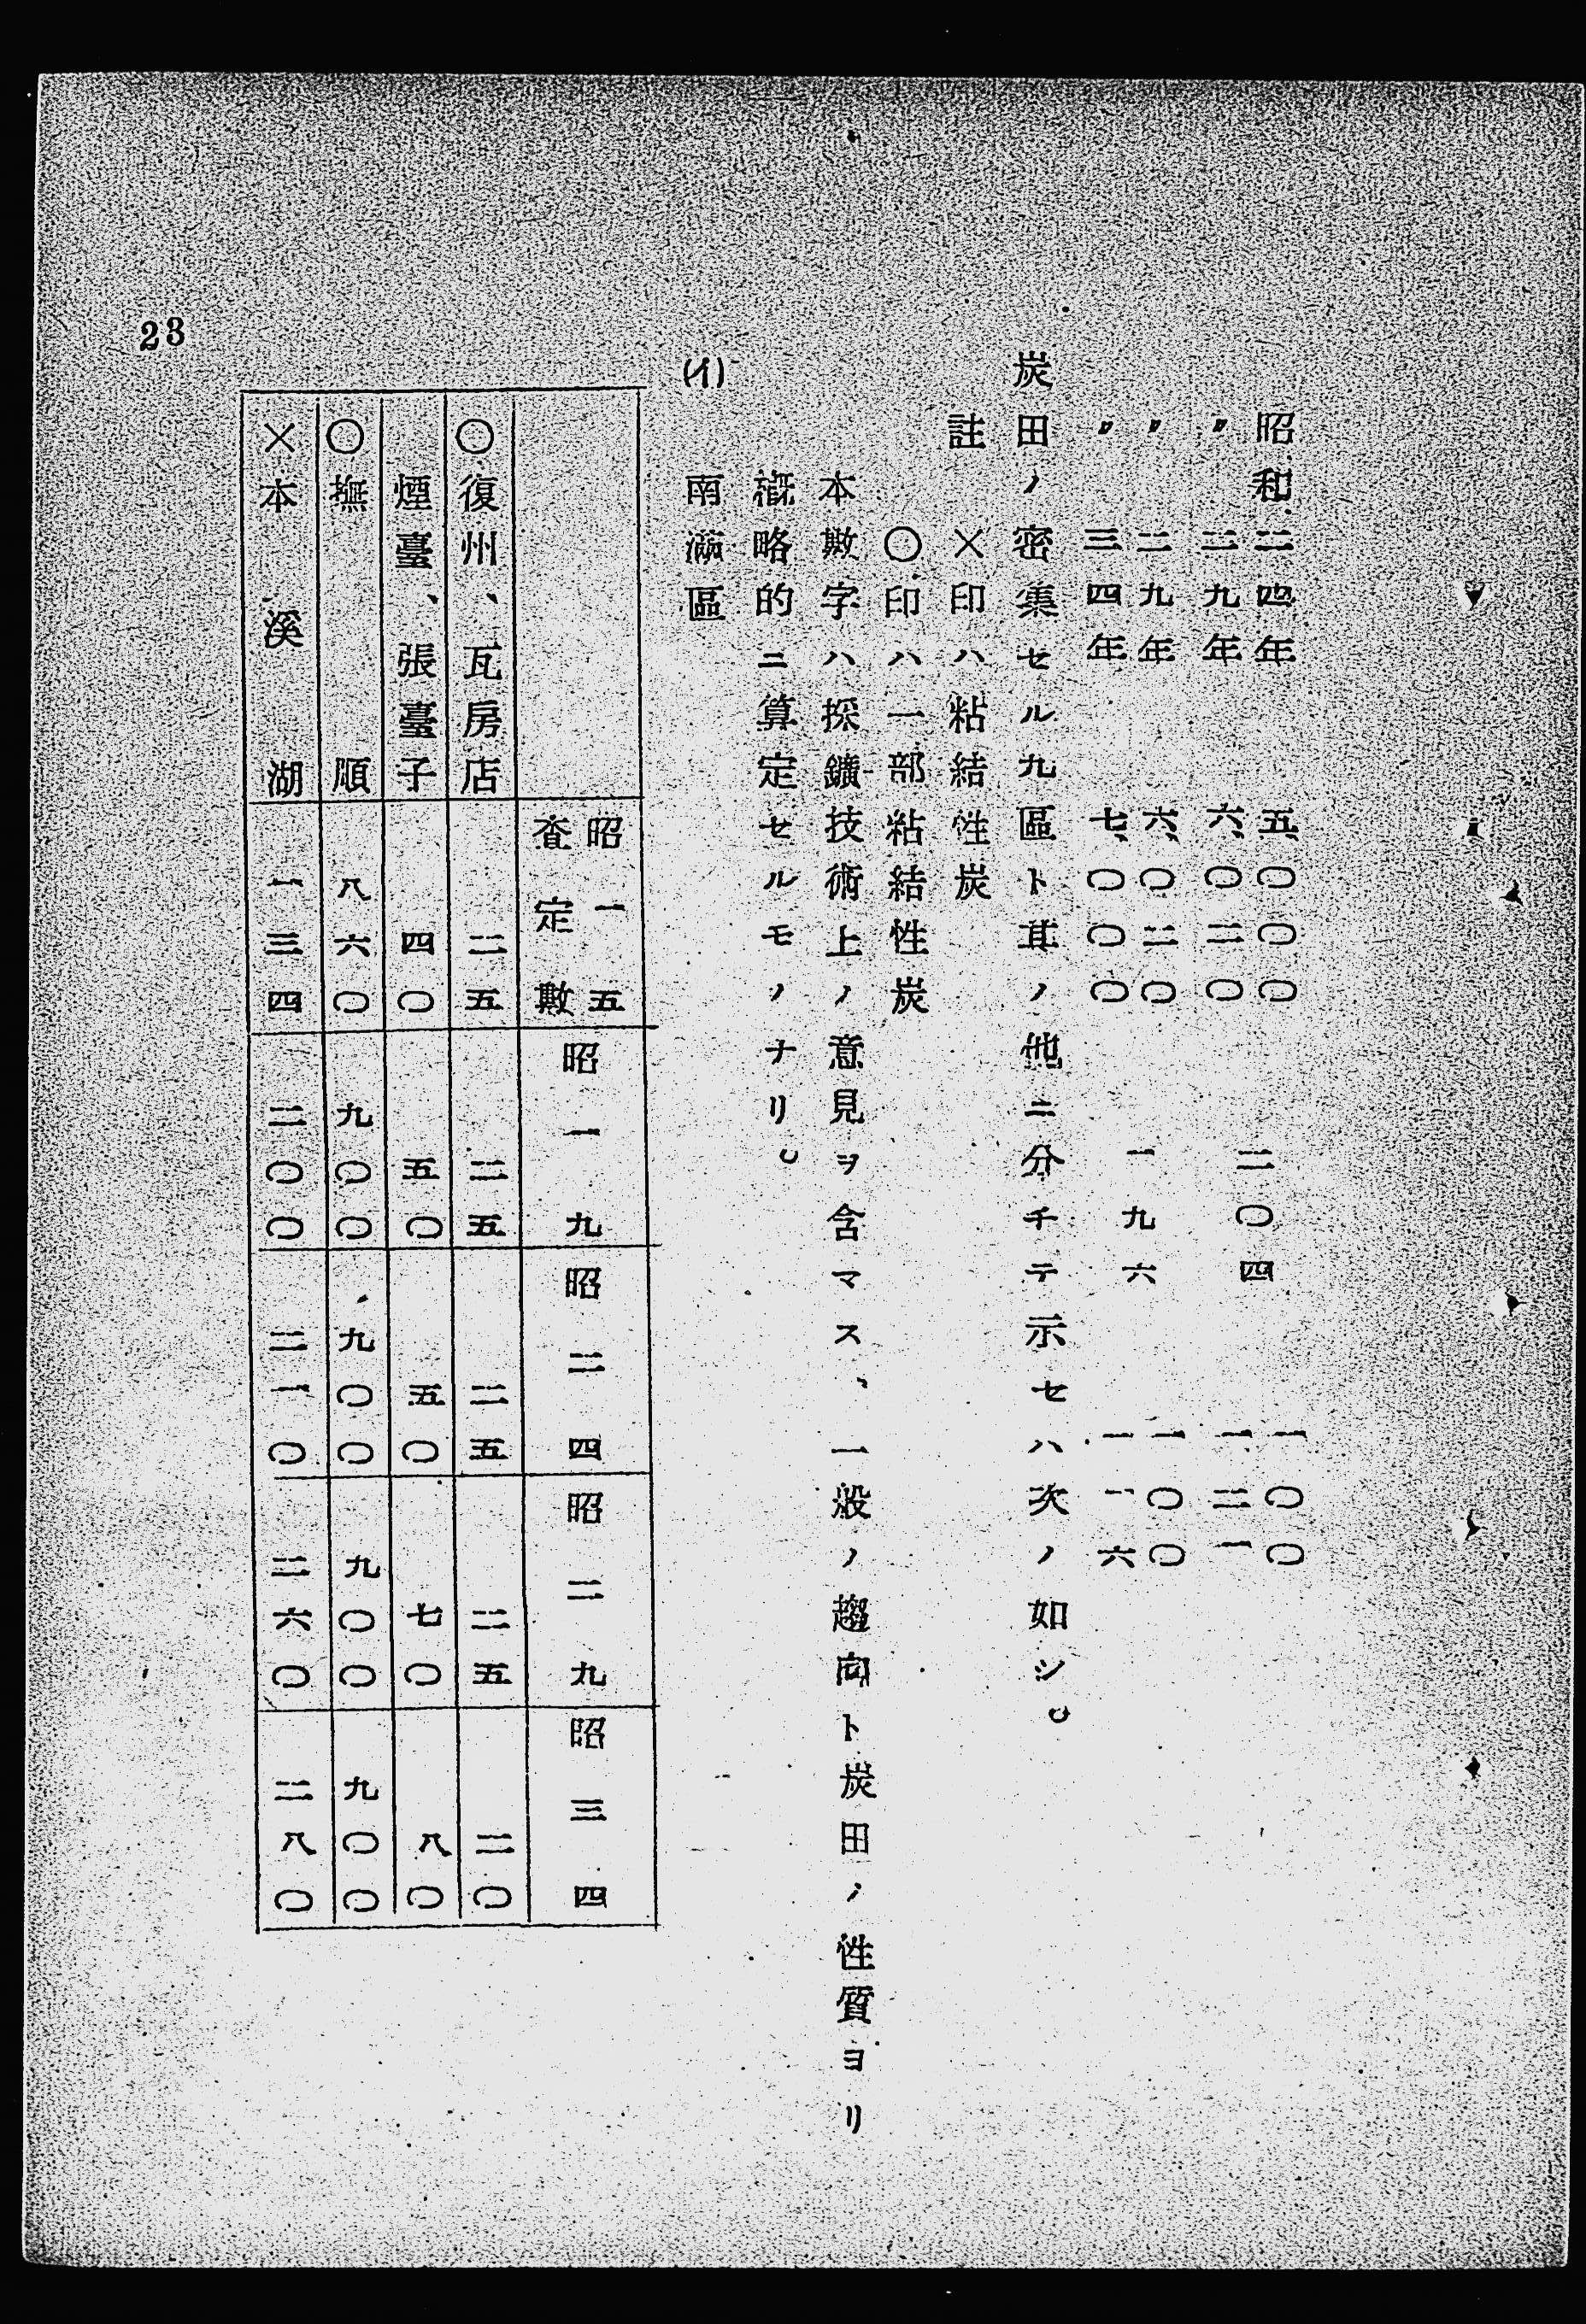 昭和二四年 五、〇〇〇 二〇四 一〇〇
〃 二九年 六、〇二〇 一二一
〃 二九年 六、〇二〇 一九六 一〇〇
〃 三四年 七、〇〇〇 一一六
炭田ノ密集セル九區ト其ノ他ニ分チテ示セハ次ノ如シ。
註 ×印ハ粘結性炭
〇印ハ一部粘結性炭
本數字ハ探鑛技術上ノ意見ヲ含マス、一般ノ趨向ト炭田ノ性質ヨリ
概略的ニ算定セルモノナリ。
(イ) 南滿區
昭一五査定數 昭一九 昭二四 昭二九 昭三四
〇復州、瓦房店 二五 二五 二五 二五 二〇
煙臺、張臺子 四〇 五〇 五〇 七〇 八〇
〇撫順 八六〇 九〇〇 九〇〇 九〇〇 九〇〇
×本溪湖 一三四 二〇〇 二一〇 二六〇 二八〇
23